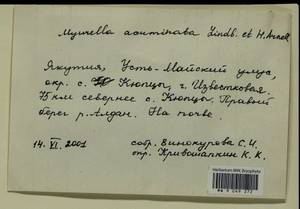 Myurella acutinava Lindb. et H. Arnell
Якутия, Усть-Майский улус,
окр. с. Кюпцы, г. Известковая.
75 км севернее с. Кюпцы. Правый
берег р. Алдан. На почве.
14. VI. 2001 собр. Винокурова С.И.
опр. Кривошапкин К.К.
Herbarium MW, Bryophyta